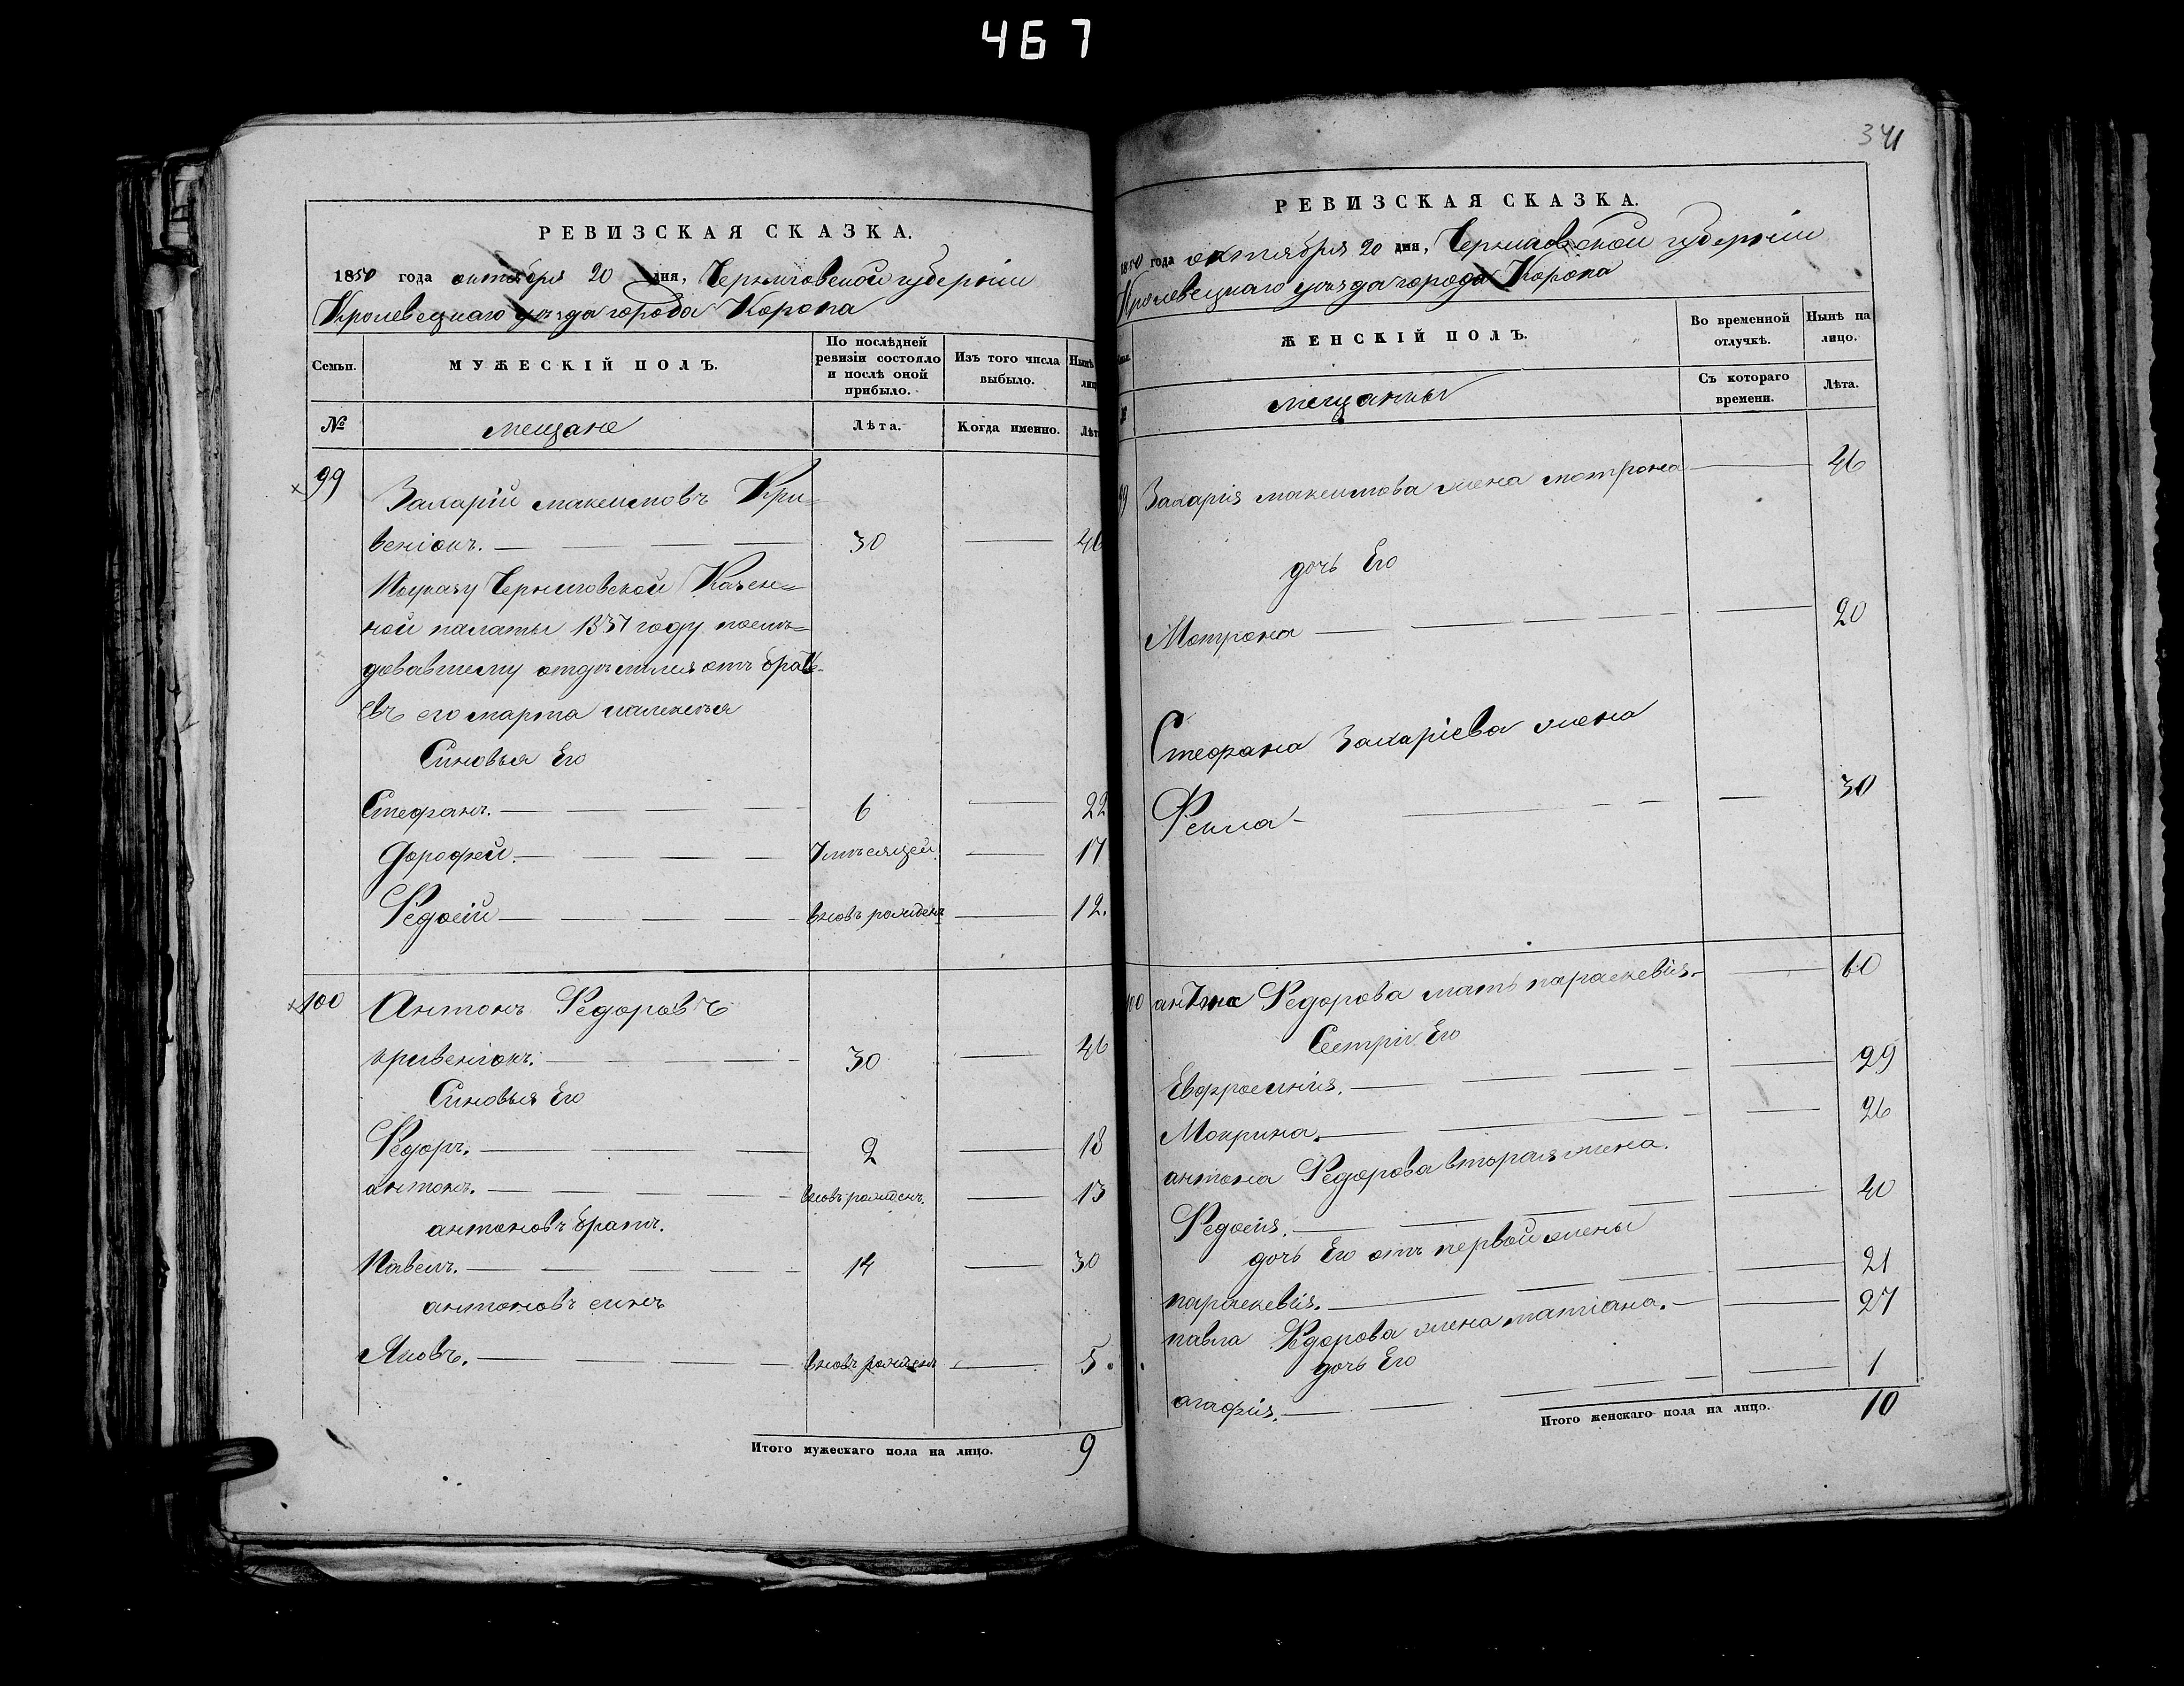 467
РЕВИЗСКАЯ СКАЗКА.
1850 года октября 20 дня, Черниговской губерніи
Кролевецкаго уезда города Коропа
Семьи.
МУЖЕСКІЙ ПОЛЪ.
По послѣдней ревизіи состояло и послѣ оной прибыло.
Изъ того числа выбыло.
Нынѣ
№
мещане
Лѣта.
Когда именно.
Лѣт
99
Захарій максимовъ Кри-
веніокъ. 30 46
Поуказу Черниговской Казен-
ной палаты 1837 году
отъ брать-
евъ его марта
Синовья Его
Стефанъ. 6 22
Дорофей. 7 мѣсяцей. 17
Федосій вновь рожденъ 12.
100 Антонъ Федоровъ
кривеніокъ. 30 46
Синовья Его
Федоръ. 2 18
антонъ. вновь рожденъ. 13
антоновъ братъ.
Павелъ. 14 30
антоновъ синъ
Яковъ. вновь рожденъ 5.
Итого мужескаго пола на лицо. 9
341
РЕВИЗСКАЯ СКАЗКА.
1850 года октября 20 дня, Черниговской губерніи
Кролевецкаго уезда города Коропа
ЖЕНСКІЙ ПОЛЪ.
Во временной отлучкѣ.
Нынѣ на лицо.
№
мещанки
Съ котораго времени.
Лѣта.
99 Захарія максимова жена мотрона 46
дочь Его
Мотрона 20
Стефана Захаріева жена
Фекла 30
100 антона Федорова мать параскевія. 60
Сестри Его
Евфросинія. 29
Мокрина. 26
антона Федорова вторая жена.
Федосія. 40
дочь Его отъ первой жены
параскевія. 21
павла Федорова жена татіана. 27
дочь Его
агафія. 1
Итого женскаго пола на лицо. 10